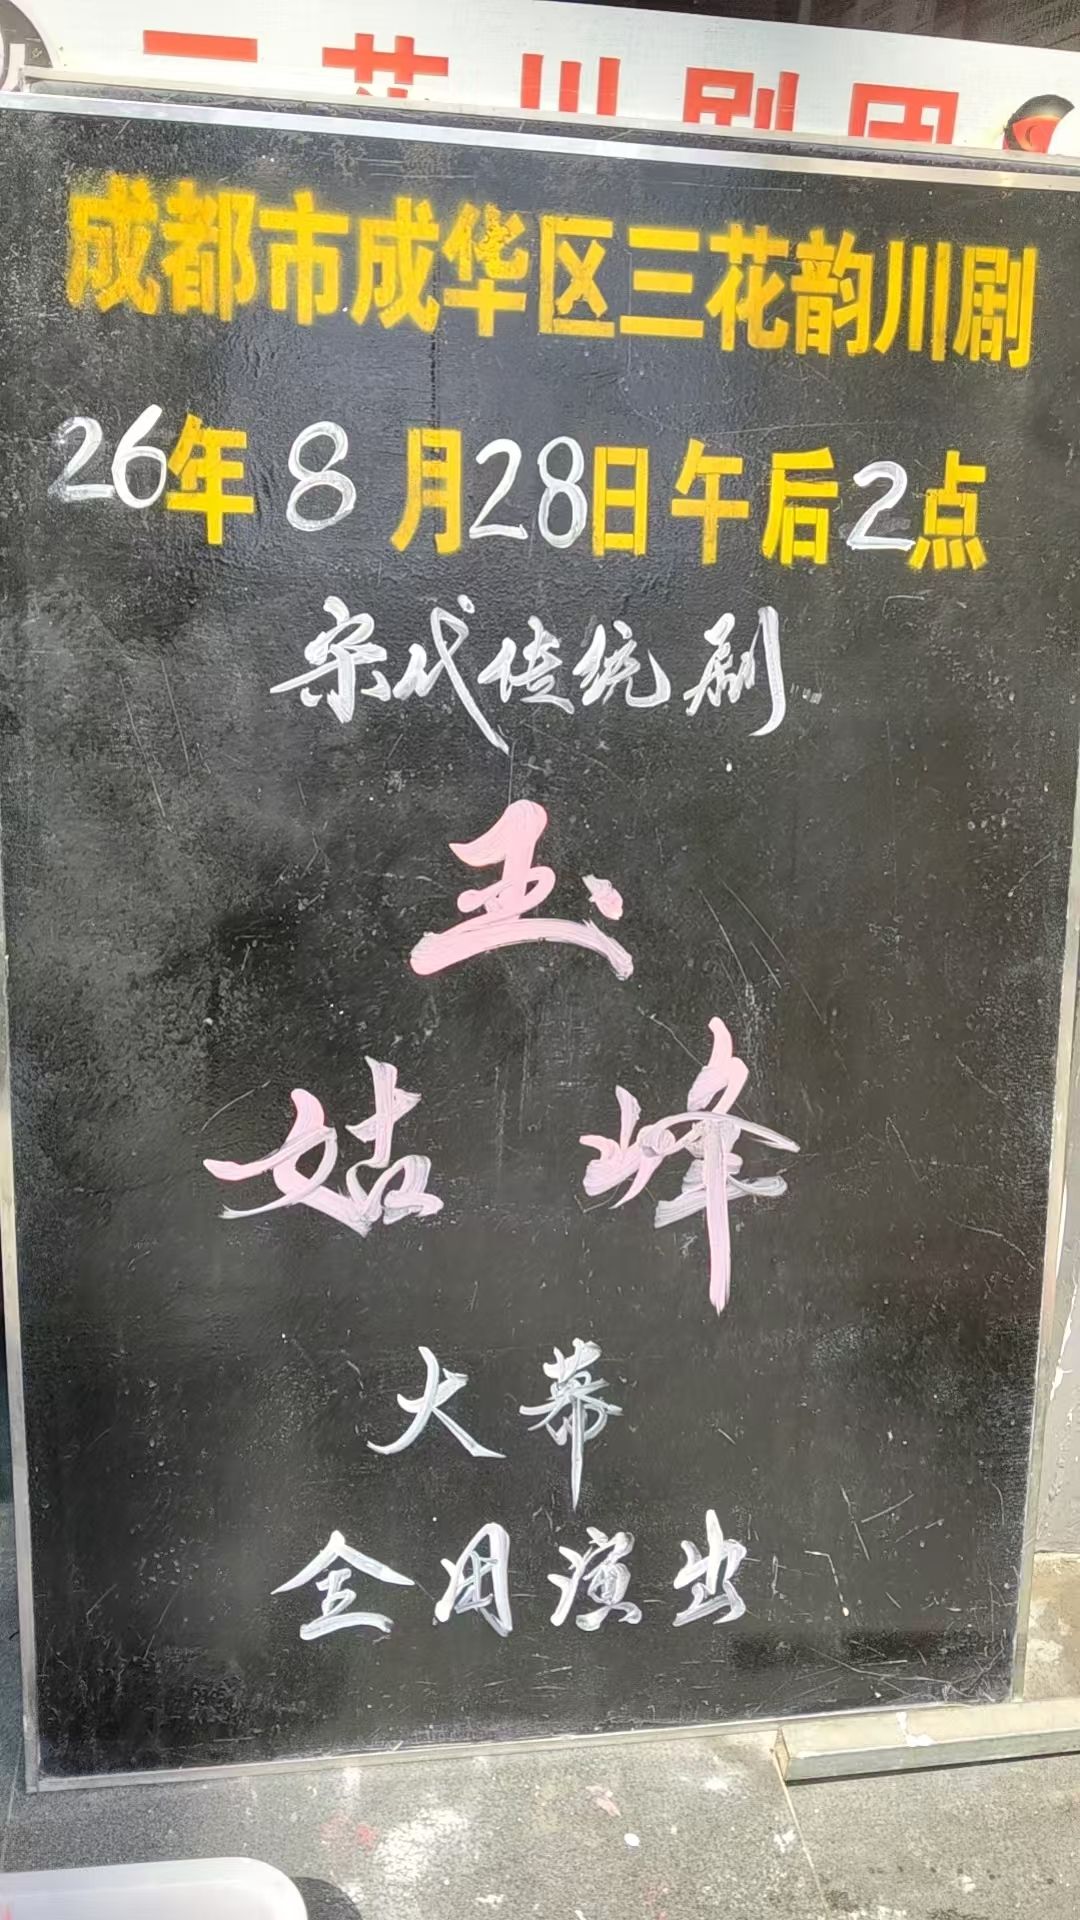 三花川剧团
成都市成华区三花韵川剧
26年8月28日午后2点
宋代传统剧
玉
姑峰
大幕
全团演出